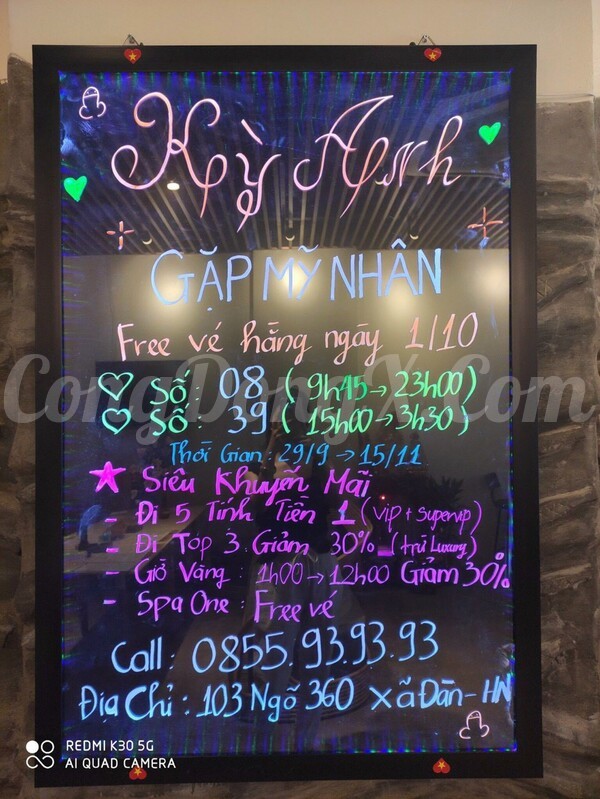 Kỳ Anh
GẶP MỸ NHÂN
Free vé hằng ngày 1/10
Số: 08 (9h45 → 23h00)
Số: 39 (15h00 → 3h30)
CongDongX.Com
Thời Gian: 29/9 → 15/11
Siêu Khuyến Mãi
- Đi 5 Tính Tiền 1 (vip + supervip)
- Đi Top 3 Giảm 30% (trừ Luxury)
- Giờ Vàng: 1h00 → 12h00 Giảm 30%
- Spa One: Free vé
Call: 0855.93.93.93
Địa Chỉ: 103 Ngõ 360 Xã Đàn - HN
REDMI K30 5G
AI QUAD CAMERA